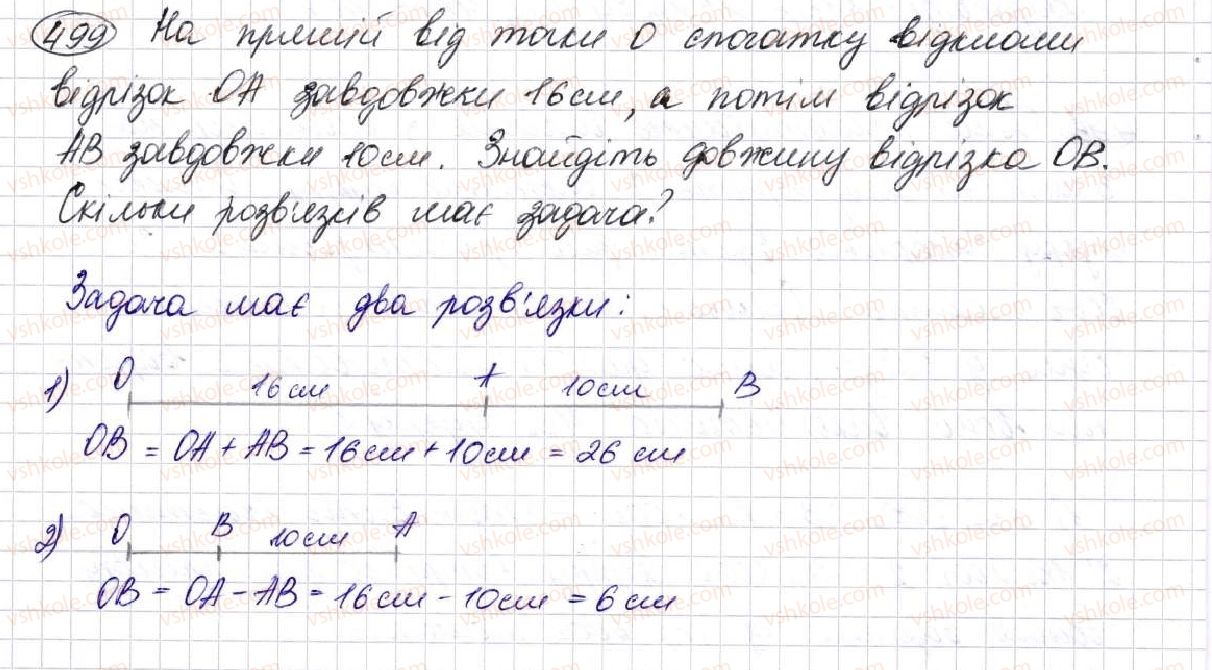 499 На прямій від точки О спочатку відклали
відрізок ОА завдовжки 16см, а потім відрізок
АВ завдовжки 10см. Знайдіть довжину відрізка ОВ.
Скільки розв'язків має задача?
Задача має два розв'язки:
1) О 16см А 10см В
ОВ = ОА + АВ = 16см + 10см = 26 см
2) О В 10см А
ОВ = ОА - АВ = 16см - 10см = 6 см